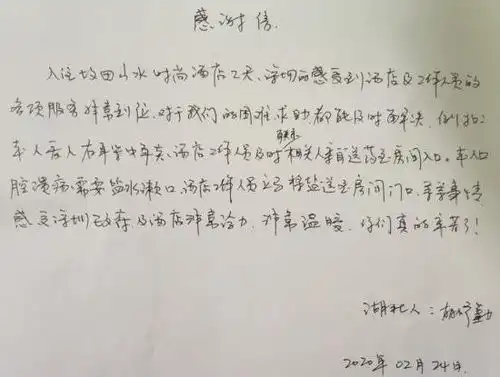 感谢信.
入住坂田山水时尚酒店2天、深切的感受到酒店及工作人员的
各项服务非常到位、对于我们的困难求助都能及时解决,例如:
本人家人右耳中耳炎、酒店工作人员及时联系相关人员送药至房间门口.本人口
腔溃疡需要盐水漱口、酒店工作人员立马将盐送至房间门口、等等事情
感受深圳政府及酒店非常给力、非常温暖、你们真的辛苦了!
湖北人:胡
2020年02月24日.